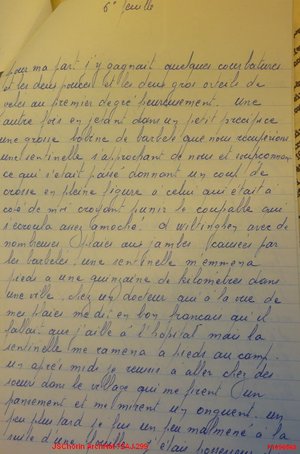 6e feuille
Pour ma part j'y gagnait quelques courbatures
et les deux pouces et les deux gros orteils de
gelés au premier degré heureusement. Une
autre fois en jetant dans un petit précipice
une grosse bobine de barbelé que nous récuperions
une sentinelle s'approchant de nous et
ce qui s'était passé donnant un coup de
crosse en pleine figure a celui qui était a
coté de moi croyant punir le coupable qui
s'écroula assez amoché. A Wiltinghen avec de
nombreuses plaies aux jambes causées par
les barbelés une sentinelle m'emmena
pieds a une quinzaine de kilomètres dans
une ville chez un docteur qui a la vue de
mes plaies me dit en bon francais qu'il
fallait que j'aille à l'hopital mais la
sentinelle me ramena a pieds au camp.
un après midi je reussis a aller chez des
soeurs dans le village qui me firent un
pansement et me mirent un onguent. un
peu plus tard je fus un peu malmené a la
suite d'une j'étais